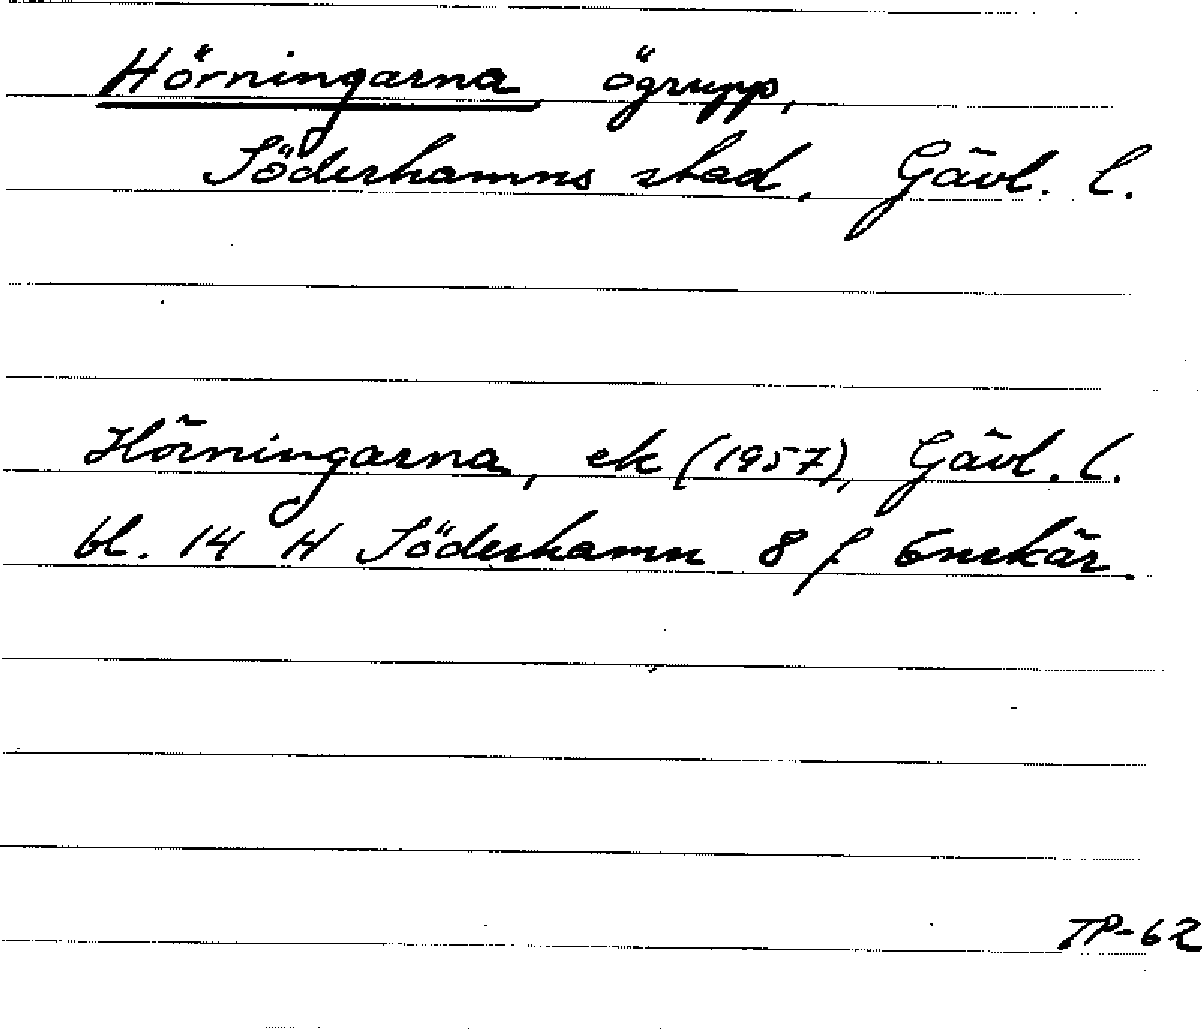 Hörningarna ögrupp,
Söderhamns stad. Gävl. l.
Hörningarna, ek (1957), Gävl. l.
bl. 14 H Söderhamn 8 f Enskär.
TP-62